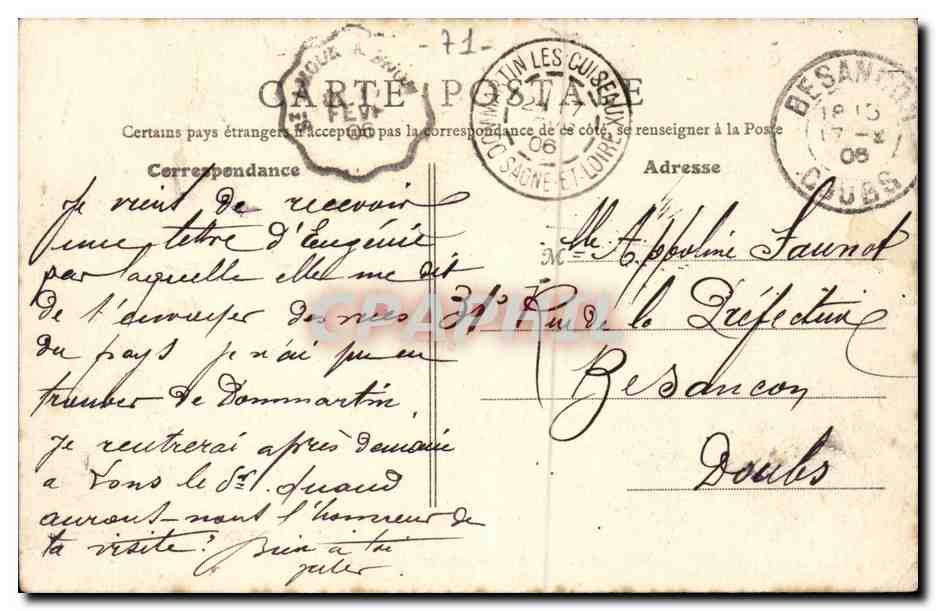 -71-
CARTE POSTALE
Certains pays étrangers n'acceptant pas la correspondance de ce côté, se renseigner à la Poste
Correspondance
Adresse
DOMMARTIN LES CUISEAUX
SAONE-ET-LOIRE
06
FEVR
BESANCON
18 15
17 - 2
06
DOUBS
Je vient de recevoir
une lettre d'Eugénie
par laquelle elle me dit
de t'envoyer des vues
du pays je n'ai pu en
trouver de Dommartin.
Je rentrerai après demain
a Lons le Sr. Quand
auront-nous l'honneur de
ta visite? Bien à toi
Mlle Appoline Faunot
31, Rue de la Préfecture
Besancon
Doubs
CPAPHIL